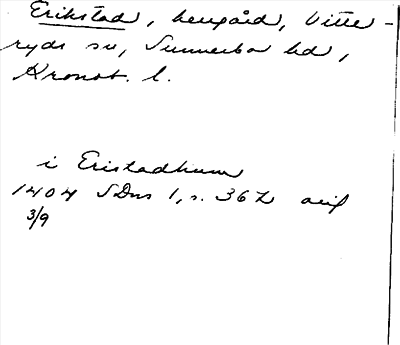 Erikstad, herrgård, Vitta-
ryds sn, Sunnerbo hd,
Kronob. l.
i Eristadhum
1404 SDns 1, s. 362 avs
3/9